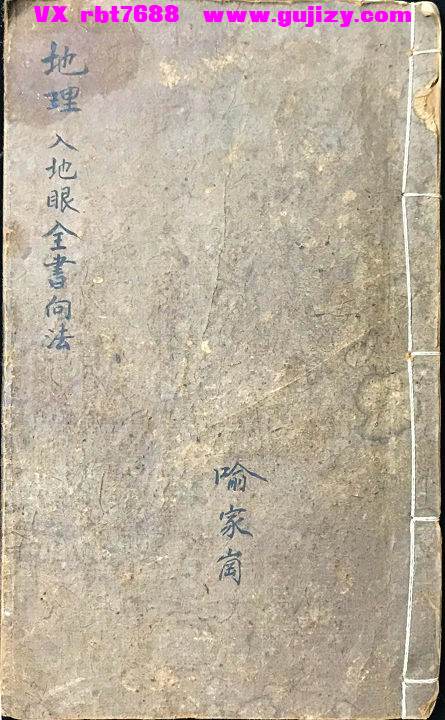 VX rbt7688 www.gujizy.com
地理 入地眼全書向法
喻家崗